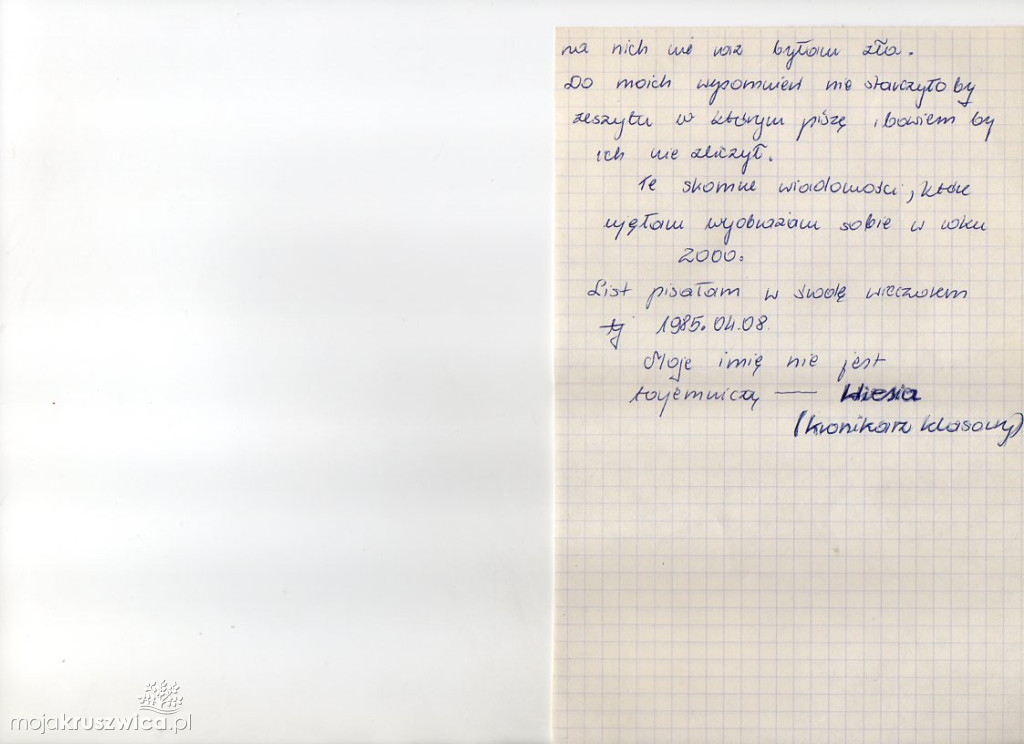 na nich nie raz byłam zła.
Do moich wspomnień nie starczyło by
zeszytu w którym piszę, bowiem by
ich nie zliczył.
Te skomne wiadomości, które
ujęłam wyobrażam sobie w roku
2000.
List pisałam w środę wieczorem
tj 1985.04.08.
Moje imię nie jest
tajemniczą — Wiesia
(kronikarz klasowy)
mojakruszwica.pl